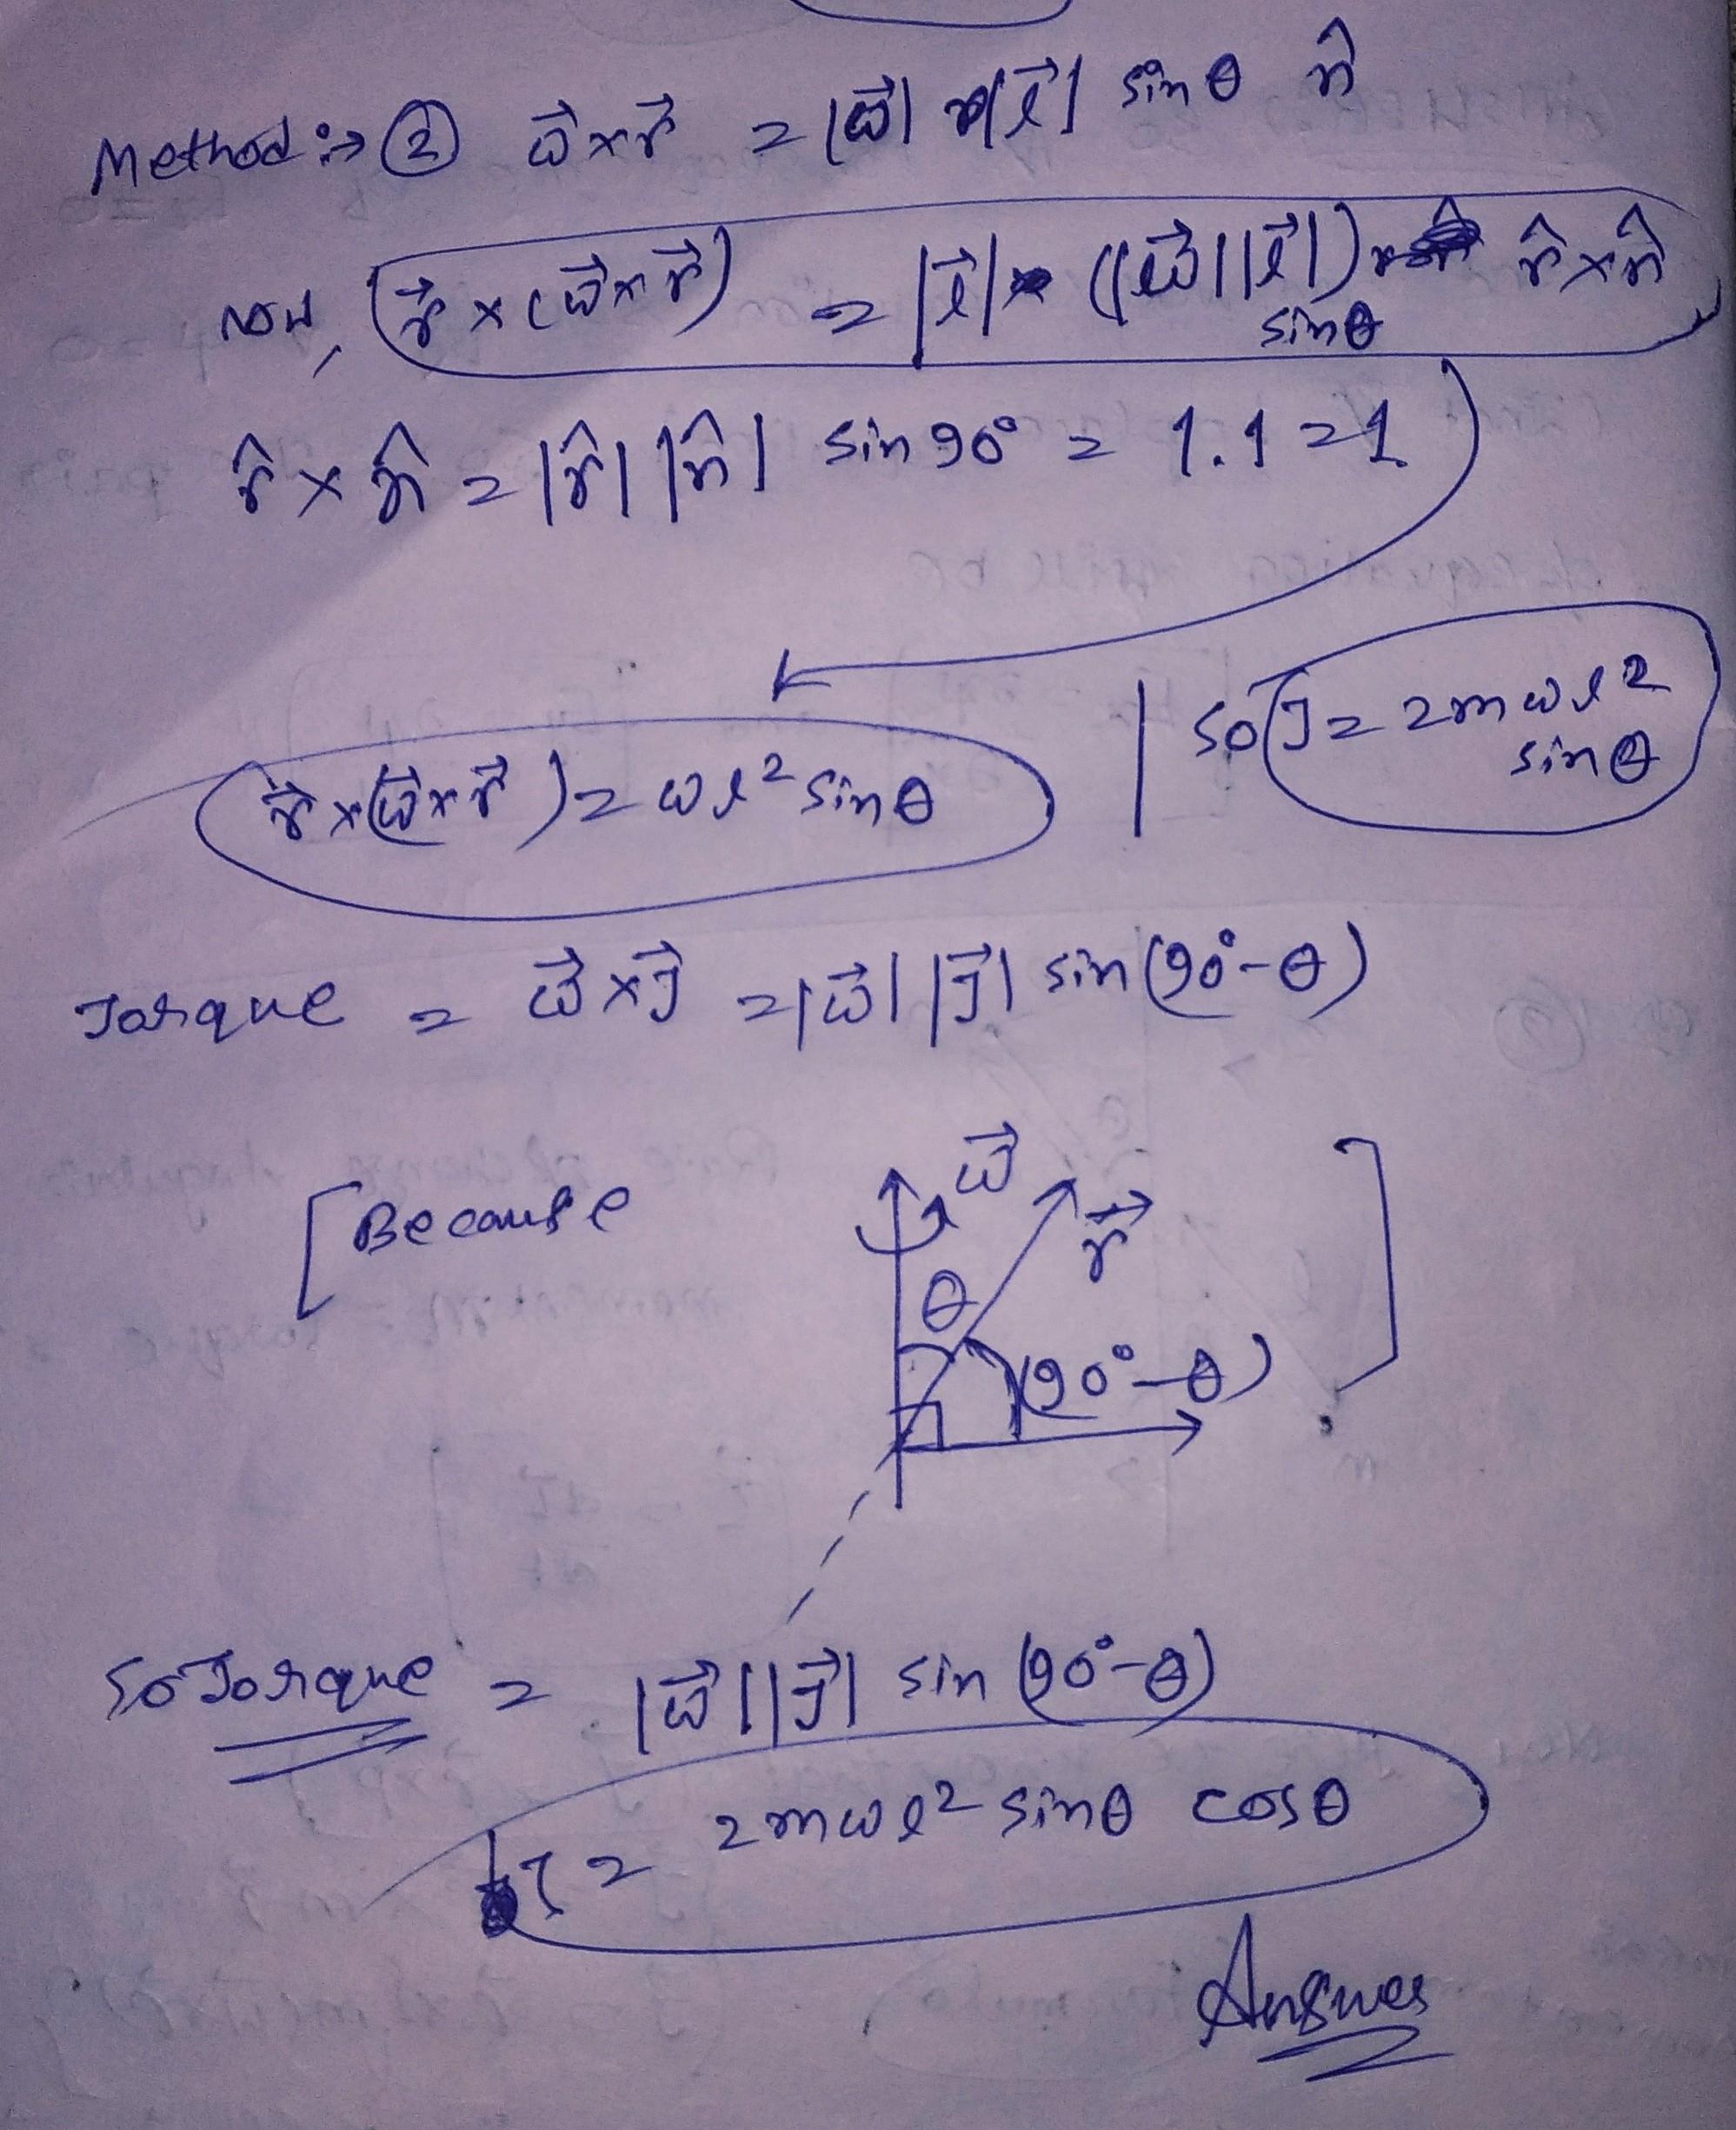 Method :→ ② ω⃗ × r⃗ = |ω⃗| |l⃗| sin θ n̂
Now, r⃗ × (ω⃗ × r⃗) = |l⃗| (|ω⃗| |l⃗|) sinθ r̂ × n̂
r̂ × n̂ = |r̂| |n̂| sin 90° = 1.1 = 1
r⃗ × (ω⃗ × r⃗) = ωl² sinθ | So J = 2mωl² sinθ
Torque = ω⃗ × J⃗ = |ω⃗| |J⃗| sin (90° - θ)
[Because ω⃗ r⃗ ]
θ
(90° - θ)
So Torque = |ω⃗| |J⃗| sin (90° - θ)
τ = 2mωl² sinθ cosθ
Answer